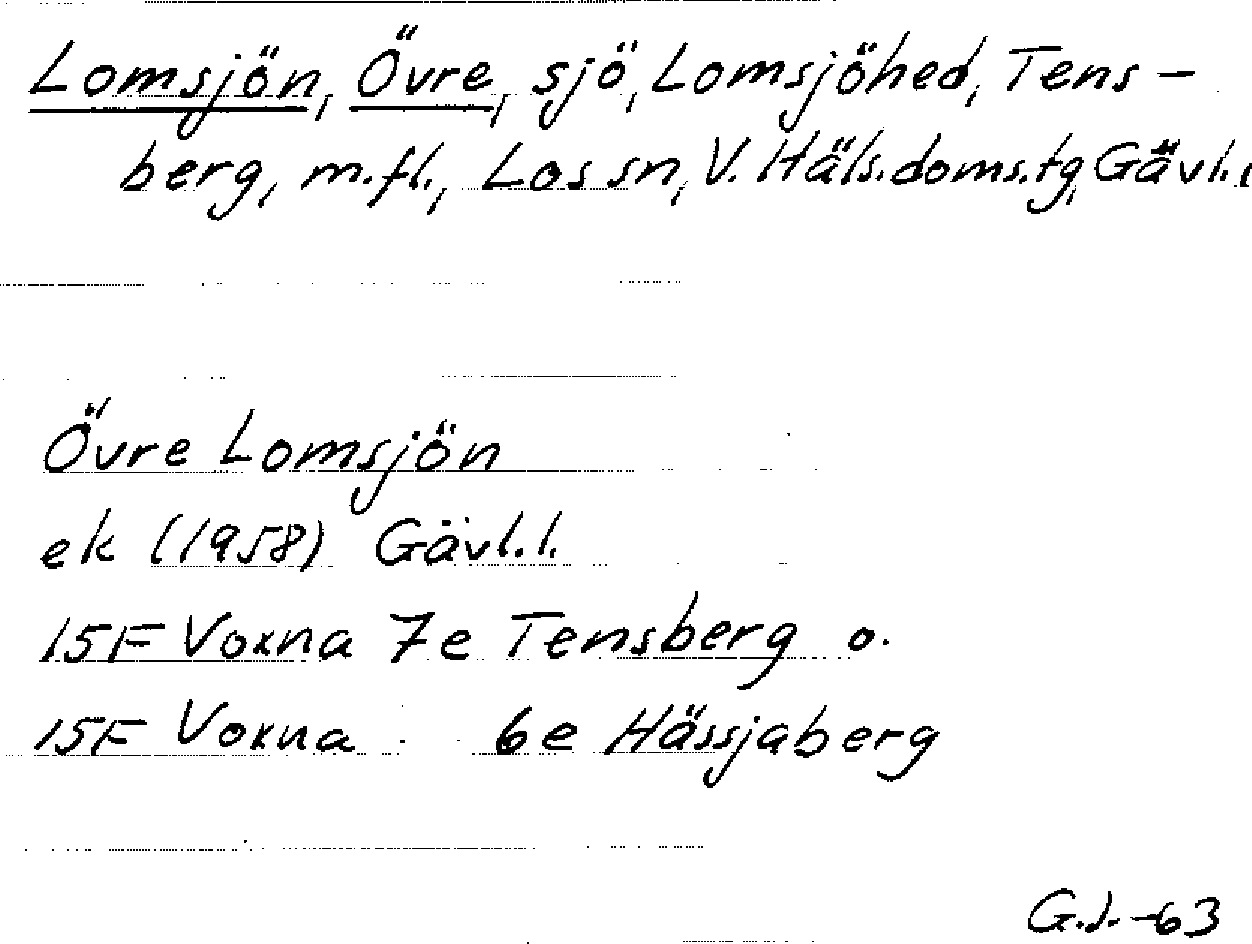 Lomsjön, Övre, sjö, Lomsjöhed, Tens-
berg, m.fl., Los sn, V. Häls.doms.tg, Gävl.l
Övre Lomsjön
ek (1958) Gävl.l.
15F Voxna 7e Tensberg o.
15F Voxna 6e Hässjaberg
G.J.-63